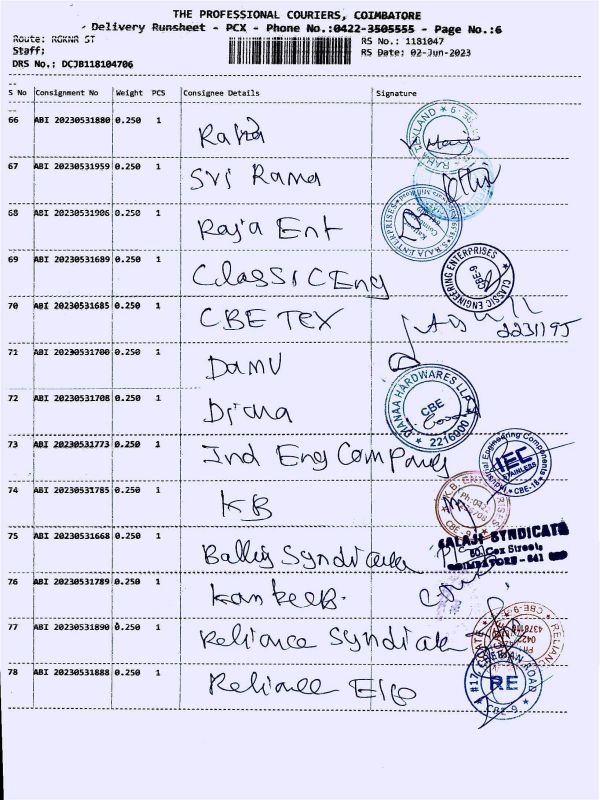 THE PROFESSIONAL COURIERS, COIMBATORE
- Delivery Runsheet - PCX - Phone No.:0422-3505555 - Page No.:6
Route: RGKNR ST
RS No.: 1181047
Staff:
RS Date: 02-Jun-2023
DRS No.: DCJB118104706
S No Consignment No Weight PCS Consignee Details Signature
66 ABI 20230531880 0.250 1
67 ABI 20230531959 0.250 1 Sri Rama
68 ABI 20230531906 0.250 1 Raja Ent
RAJA ENTERPRISES
69 ABI 20230531689 0.250 1 Classic Eng
CLASSIC ENGINEERING ENTERPRISES
CBE-9
70 ABI 20230531685 0.250 1 CBE TEX
2231195
71 ABI 20230531700 0.250 1 Damu
72 ABI 20230531708 0.250 1 Diana
DIANAA HARDWARES LLP
CBE
2216900
73 ABI 20230531773 0.250 1 Ind Eng Company
Industrial Engineering Components
IEC
STAINLESS
CBE-18
74 ABI 20230531785 0.250 1 KB
75 ABI 20230531668 0.250 1
BALAJI SYNDICATE
80, Cox Street,
COIMBATORE - 641
76 ABI 20230531789 0.250 1
77 ABI 20230531890 0.250 1 Reliance Syndicate
RELIANCE
CBE-9
78 ABI 20230531888 0.250 1 Reliance
RE
CBE-9